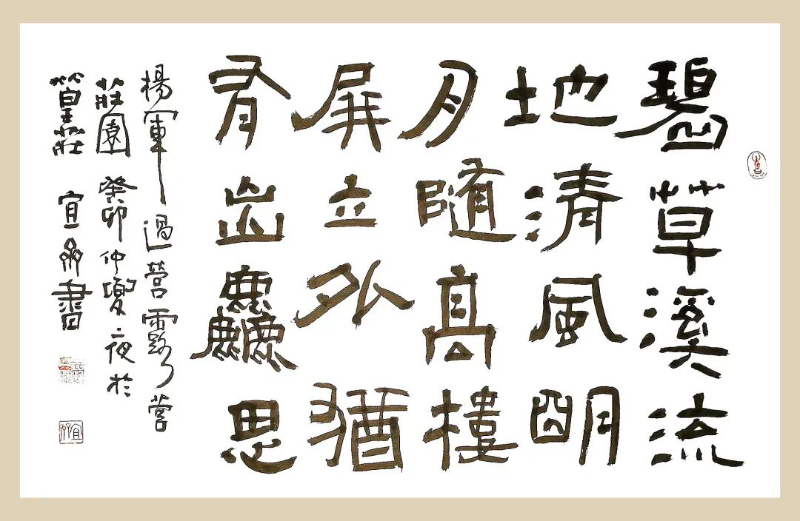 碧草溪流
地清風明
月隨高樓
屏立外猶
有出麤思
楊軍過營露營
莊園癸卯仲夏夜於
篁莊宜書